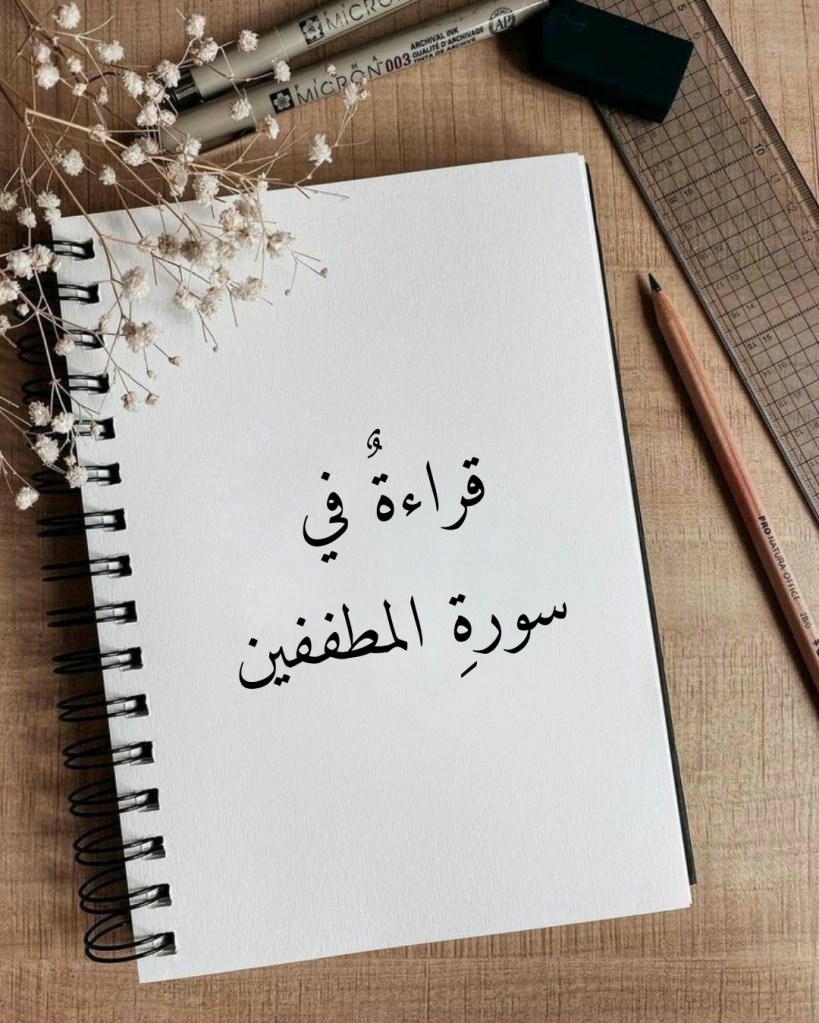 MICRON
MICRON 003 ARCHIVAL INK
QUALITÉ D'ARCHIVAGE
TINTA DE ARCHIVE
AP
قراءةٌ في
سورةِ المطففين
PRO NATURA-OFFICE 2B/0